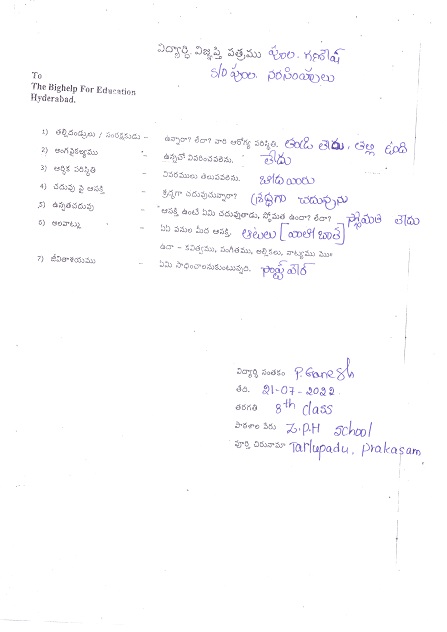 విద్యార్థి విజ్ఞప్తి పత్రము పుల. గణేష్
S/O పుల. నరసింహులు
To
The Bighelp For Education
Hyderabad.
1) తల్లిదండ్రులు / సంరక్షకుడు – ఉన్నారా? లేదా? వారి ఆరోగ్య పరిస్థితి. తండ్రి లేడు, తల్లి ఉంది
2) అంగవైకల్యము – ఉన్నచో వివరించవలెను. లేదు
3) ఆర్థిక పరిస్థితి – వివరములు తెలుపవలెను.
4) చదువు పై ఆసక్తి – శ్రద్ధగా చదువుచున్నారా? శ్రద్ధగా చదువును
5) ఉన్నతచదువు – ఆసక్తి ఉంటే ఏమి చదువుతాడు, స్తోమత ఉందా? లేదా? స్తోమత లేదు
6) అలవాట్లు – ఏఏ పనుల మీద ఆసక్తి. ఆటలు [వాలీబాల్]
ఉదా – కవిత్వము, సంగీతము, అల్లికలు, నాట్యము మొ॥
7) జీవితాశయము – ఏమి సాధించాలనుకుంటున్నది. సాఫ్ట్‌వేర్
విద్యార్థి సంతకం P. Ganesh
తేది. 21-07-2022
తరగతి 8th class
పాఠశాల పేరు Z.P.H School
పూర్తి చిరునామా Tarlupadu, Prakasam